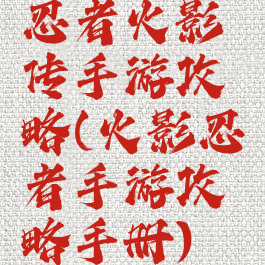 忍者火影
传手游攻
略(火影忍
者手游攻
略手册)